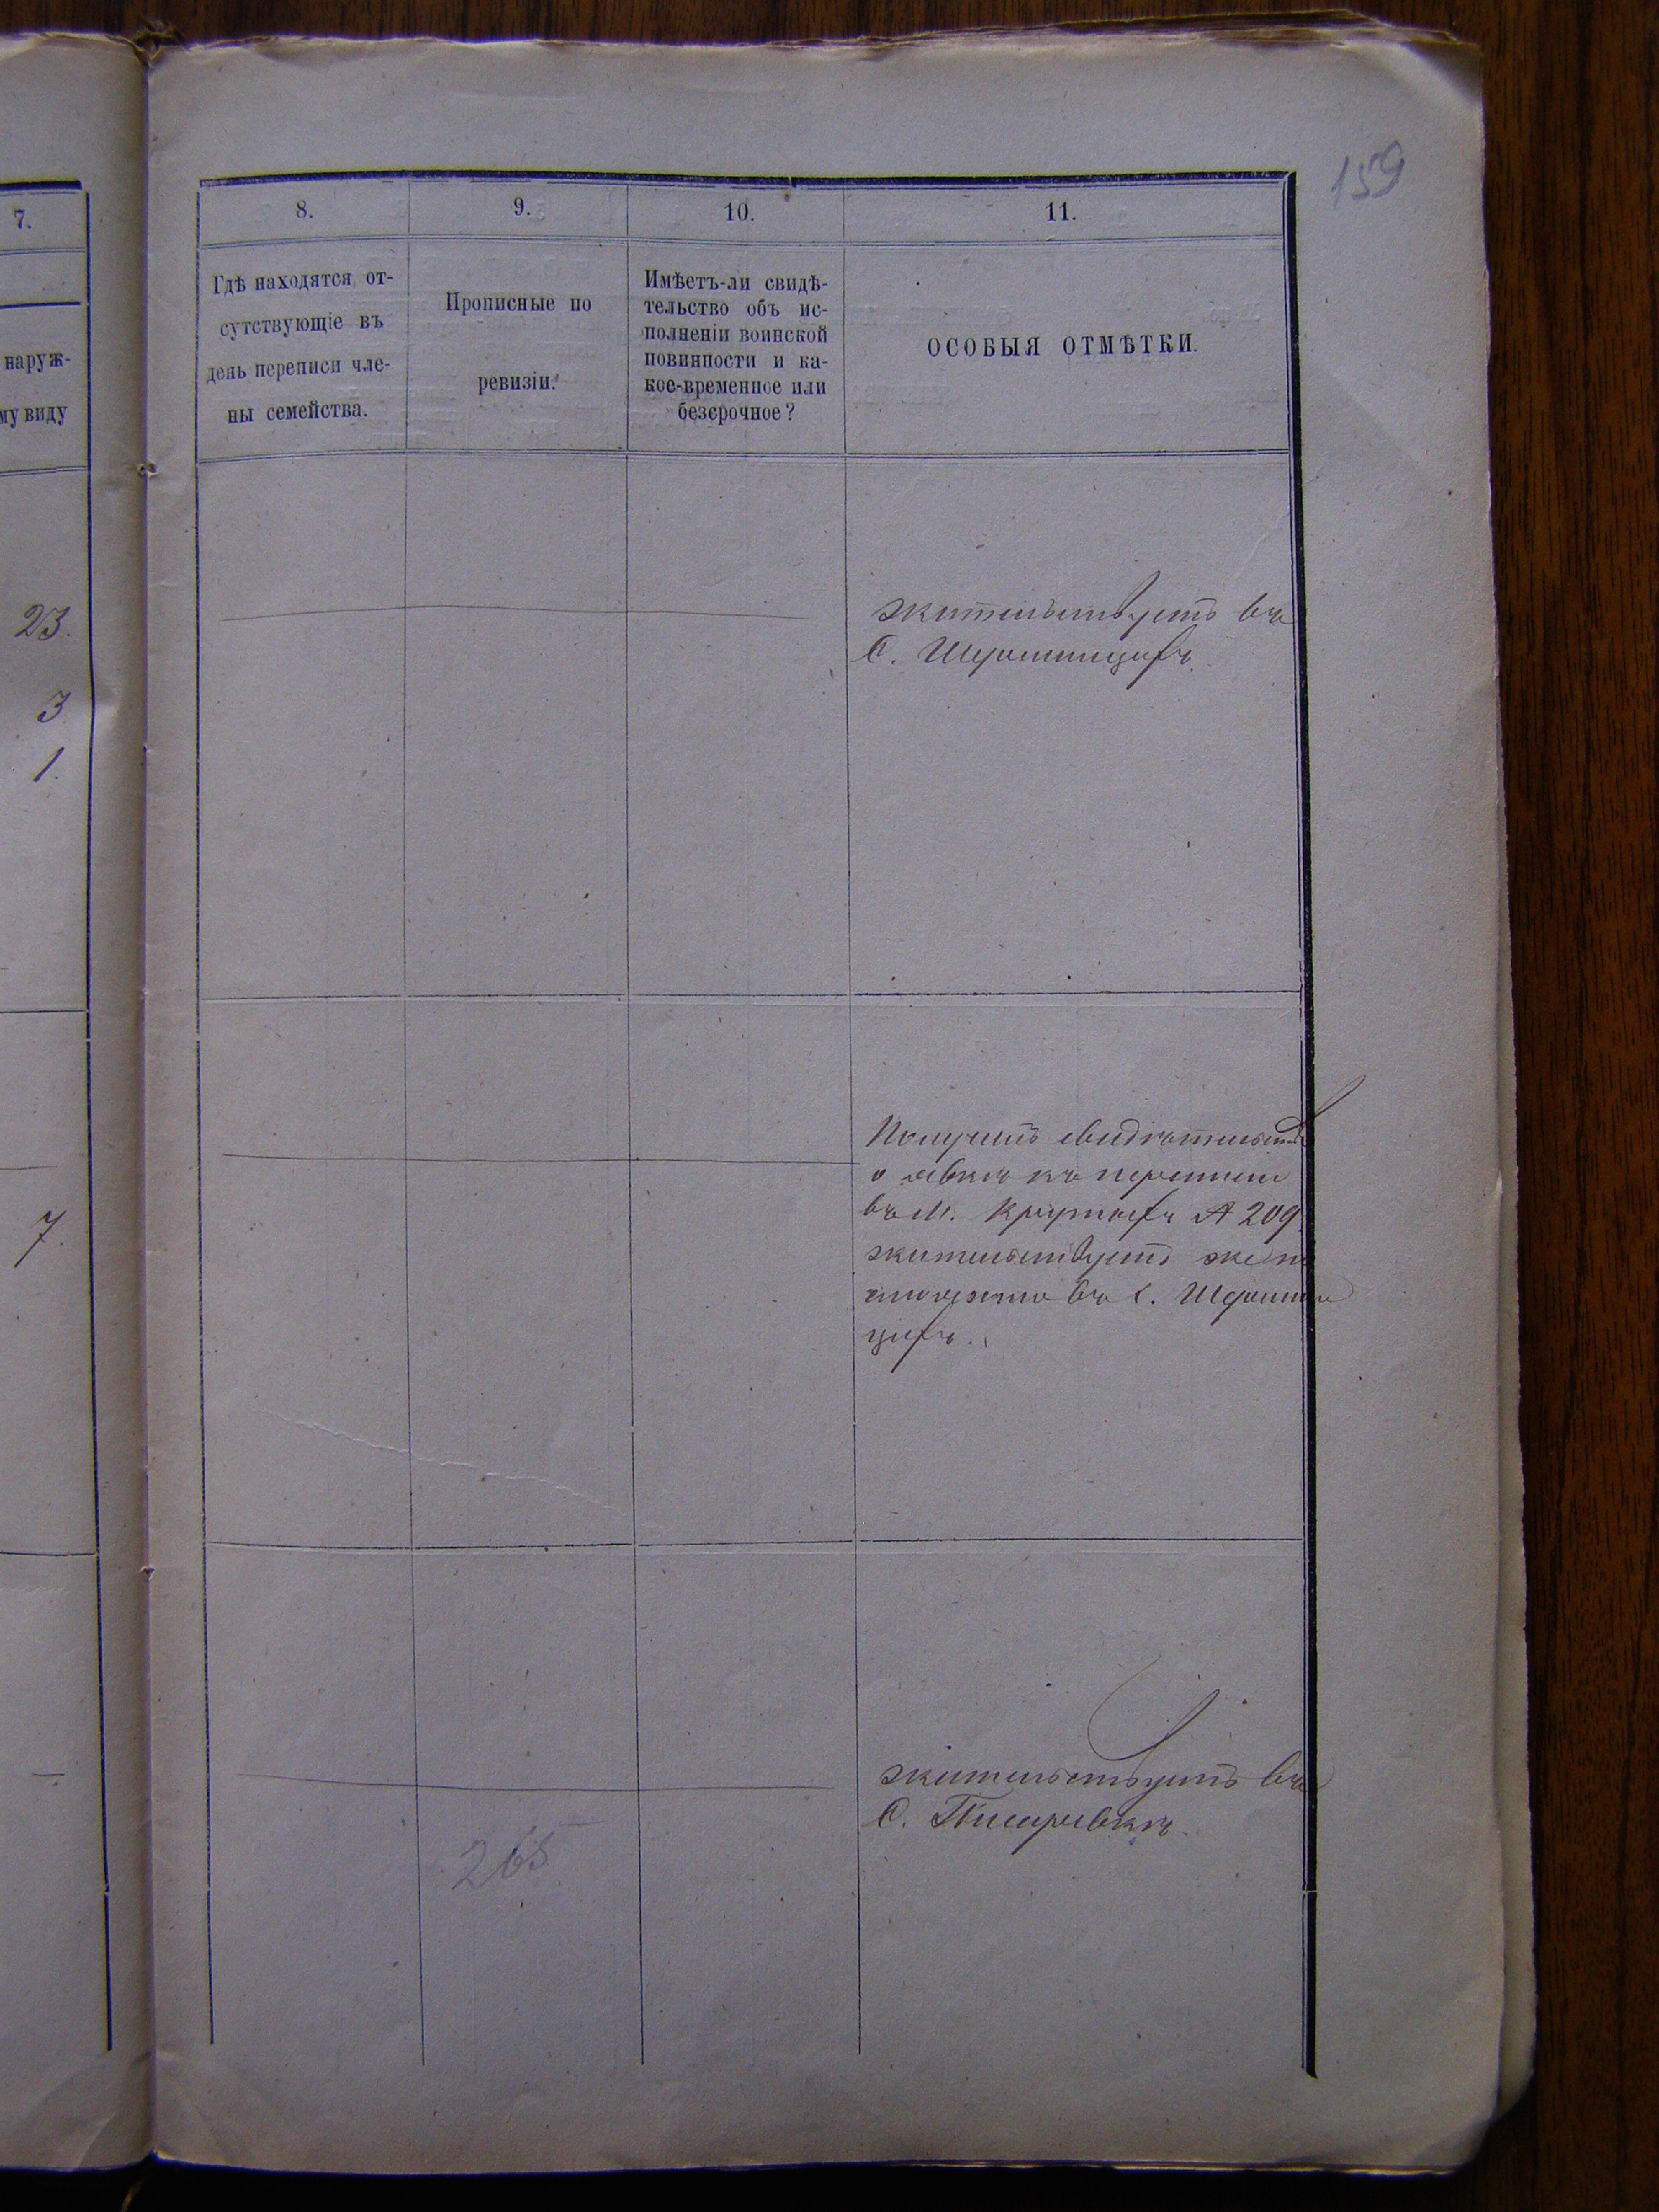 159
7.
8.
9.
10.
11.
наруж-
му виду
Гдѣ находятся от-
сутствующіе въ
день переписи чле-
ны семейства.
Прописные по
ревизіи.
Имѣетъ-ли свидѣ-
тельство объ ис-
полненіи воинской
повинности и ка-
кое-временное или
безсрочное?
ОСОБЫЯ ОТМѢТКИ.
23.
3
1.
жительствуетъ въ
С.
7.
Получилъ свидѣтельство
о явкѣ къ переписи
въ М. 209
жительствуетъ же
въ С.
жительствуетъ въ
С. Писаревкѣ
265